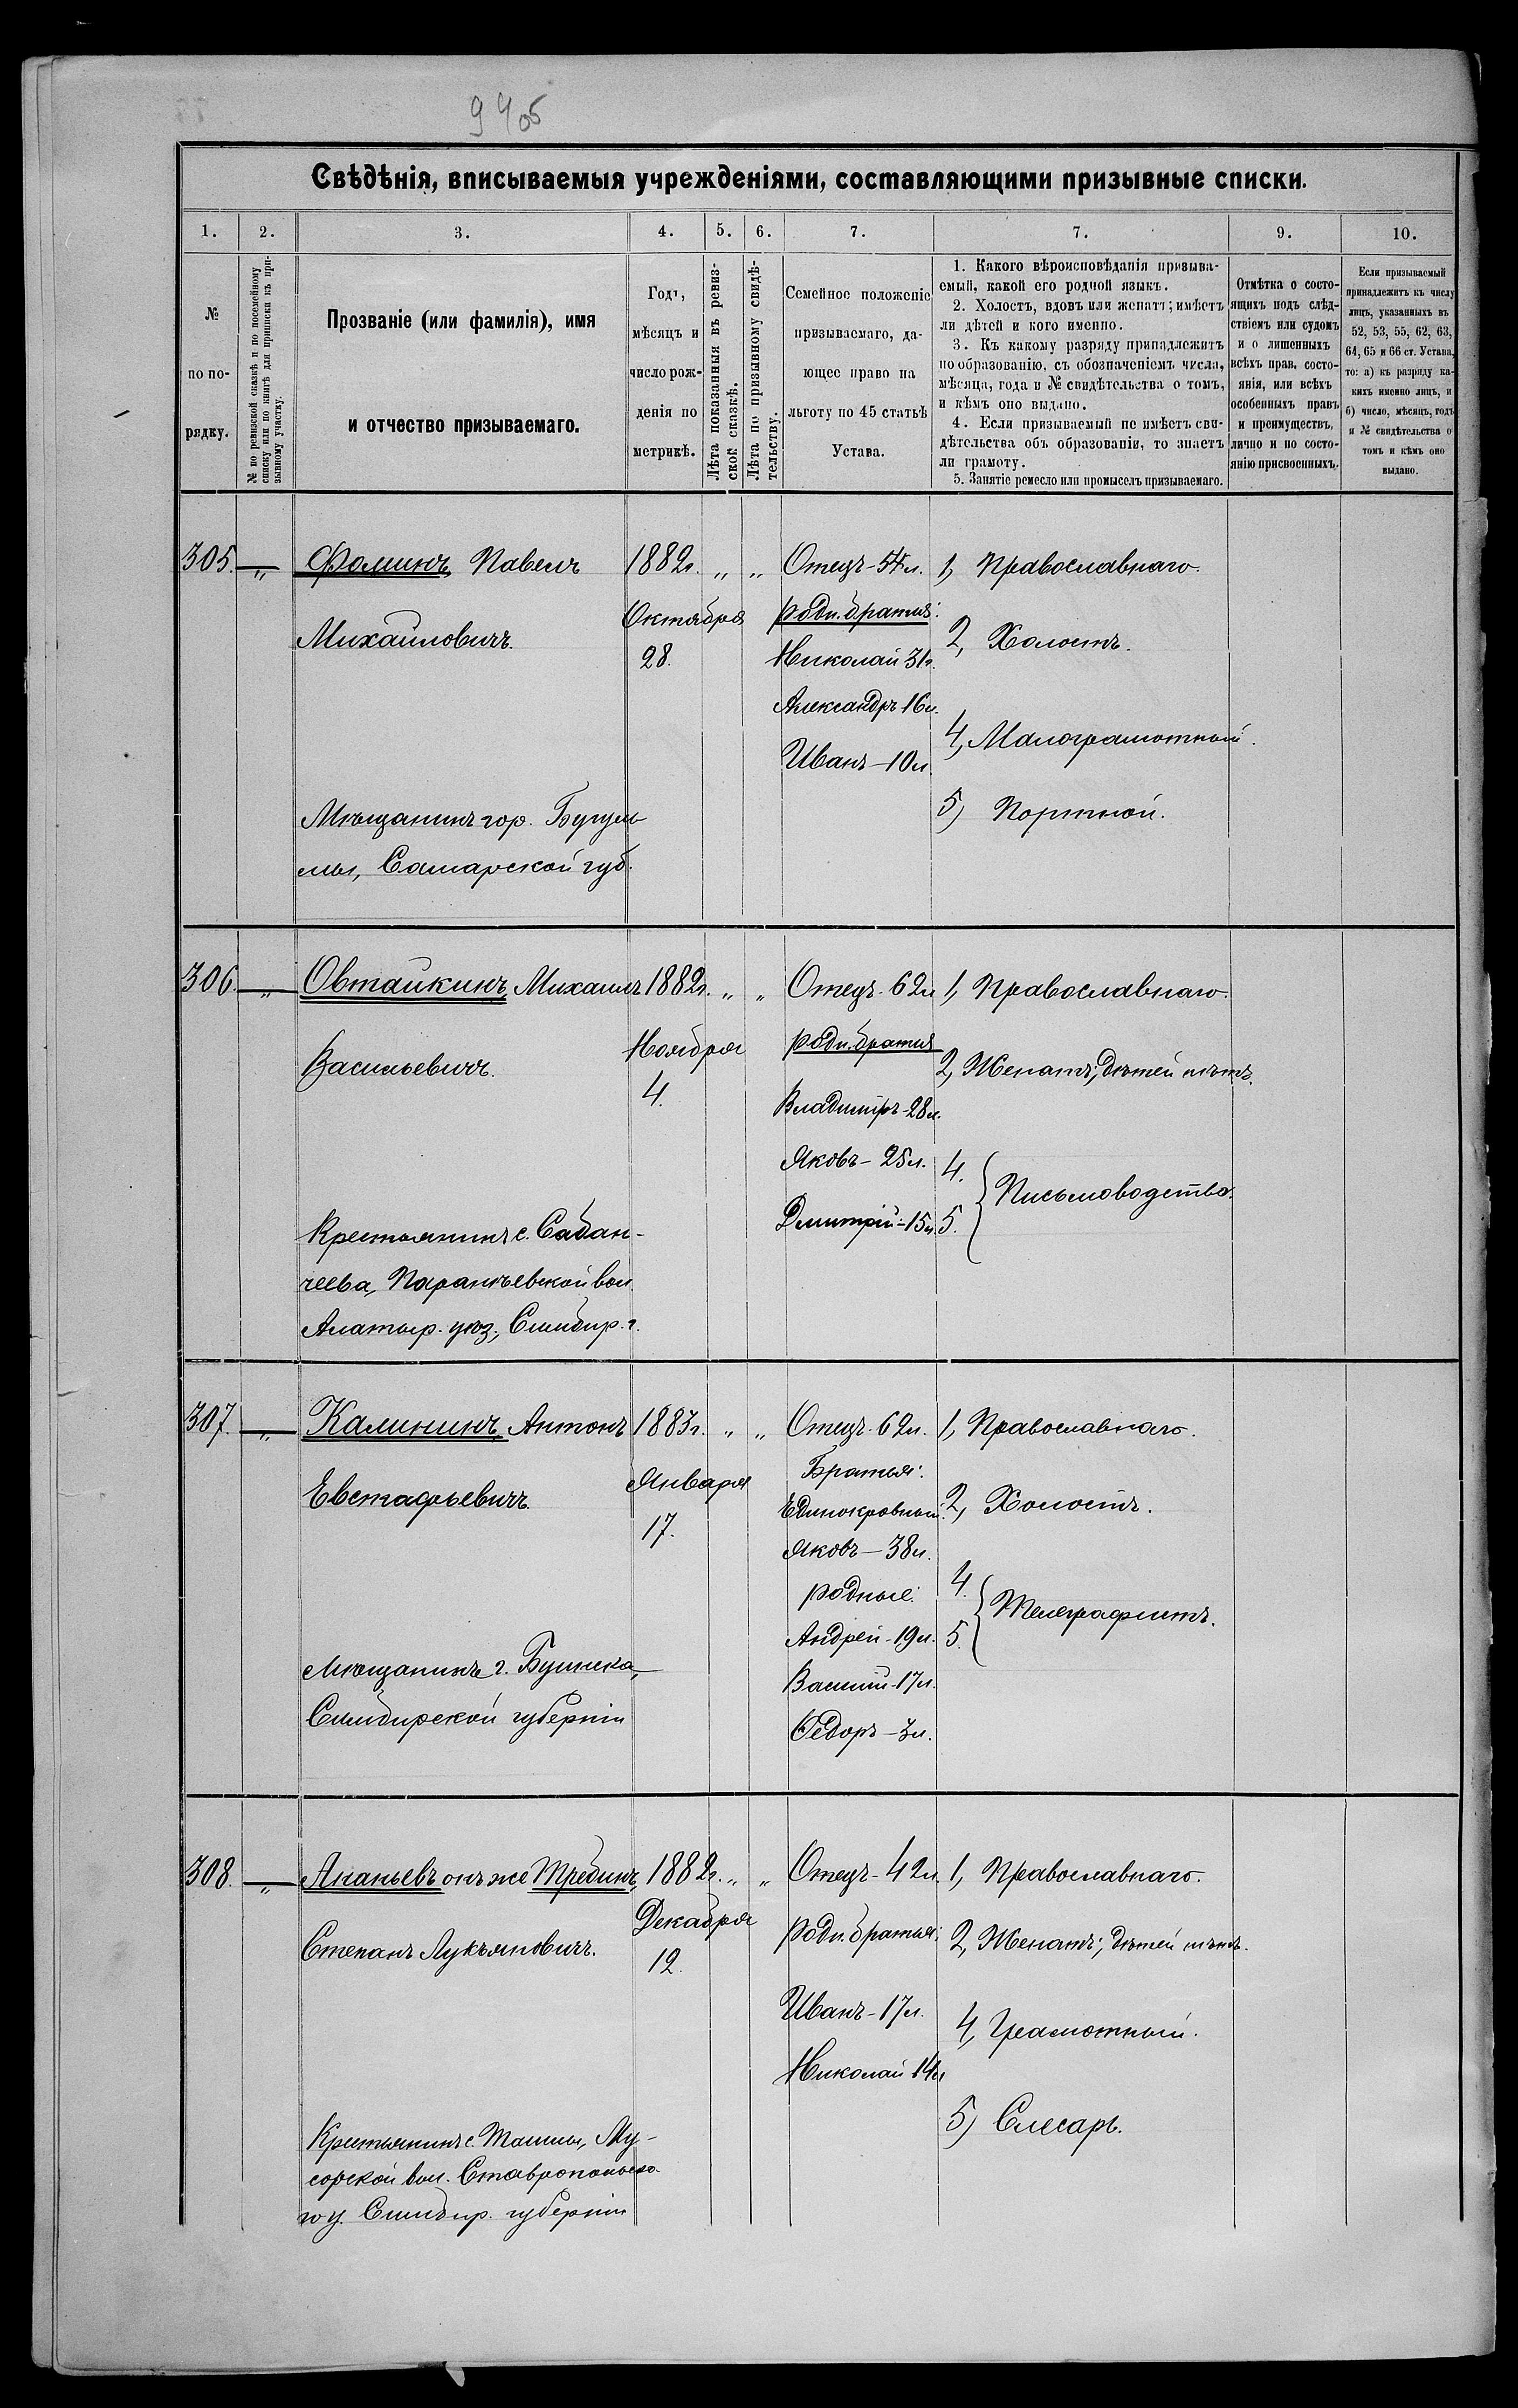 Свѣдѣнія, вписываемыя учрежденіями, составляющими призывные списки.
1. 2. 3. 4. 5. 6. 7. 7. 9. 10.
№ по порядку.
№ по ревизской сказкѣ и по посемейному
списку или по книгѣ для приписки къ при-
зывному участку.
Прозваніе (или фамилія), имя
и отчество призываемаго.
Годъ,
мѣсяцъ и
число рож-
денія по
метрикѣ.
Лѣта показанныя въ ревиз-
ской сказкѣ.
Лѣта по призывному свидѣ-
тельству.
Семейное положеніе
призываемаго, да-
ющее право на
льготу по 45 статьѣ
Устава.
1. Какого вѣроисповѣданія призыва-
емый, какой его родной языкъ.
2. Холостъ, вдовъ или женатъ; имѣетъ
ли дѣтей и кого именно.
3. Къ какому разряду принадлежитъ
по образованію, съ обозначеніемъ числа,
мѣсяца, года и № свидѣтельства о томъ,
и кѣмъ оно выдано.
4. Если призываемый не имѣетъ сви-
дѣтельства объ образованіи, то знаетъ
ли грамоту.
5. Занятіе ремесло или промыселъ призываемаго.
Отмѣтка о состо-
ящихъ подъ слѣд-
ствіемъ или судомъ
и о лишенныхъ
всѣхъ прав. состо-
янія, или всѣхъ
особенныхъ правъ
и преимуществъ,
лично и по состо-
янію присвоенныхъ.
Если призываемый
принадлежитъ къ числу
лицъ, указанныхъ въ
52, 53, 55, 62, 63,
64, 65 и 66 ст. Устава,
то: а) къ разряду ка-
кихъ именно лицъ, и
б) число, мѣсяцъ, годъ
и № свидѣтельства о
томъ и кѣмъ оно
выдано.
305. „ Фоминъ, Павелъ
Михайловичъ.
Мѣщанинъ гор. Бугуль
мы, Самарской губ.
1882г. „ „
Октября
28.
Отецъ-54л.
родн. братья:
Николай 31г.
Александръ 16л.
Иванъ-10л.
1, Православнаго.
2, Холостъ.
4, Малограмотный.
5) Портной.
306. „ Овтайкинъ, Михаилъ
Васильевичъ.
Крестьянинъ с. Сабан-
чеева, Паранѣевской вол.
Алатыр. уѣз., Симбир. г.
1882г. „ „
Ноября
4.
Отецъ-62л.
родн. братья
Владиміръ-28л.
Яковъ-25л.
Дмитрій-15л.
1, Православнаго.
2, Женатъ; дѣтей нѣтъ.
4.
5. Письмоводство.
307. „ Калининъ, Антонъ
Евстафьевичъ.
Мѣщанинъ г. Буинска,
Симбирской губерніи
1883г. „ „
Января
17.
Отецъ-62л.
Братья:
Единокровный:
Яковъ-38л.
родные:
Андрей-19л.
Василій-17л.
Ѳедоръ-3л.
1, Православнаго.
2, Холостъ.
4.
5. Телеграфистъ.
308. „ Ананьевъ онъ же Требинъ,
Степанъ Лукъяновичъ.
Крестьянинъ с. Ташлы, Му-
сорской вол. Ставропольска-
го у. Симбир. губерніи
1882г. „ „
Декабря
12.
Отецъ-42л.
родн. братья:
Иванъ-17л.
Николай 14л
1, Православнаго.
2, Женатъ; дѣтей нѣтъ.
4, Грамотный.
5) Слесарь.